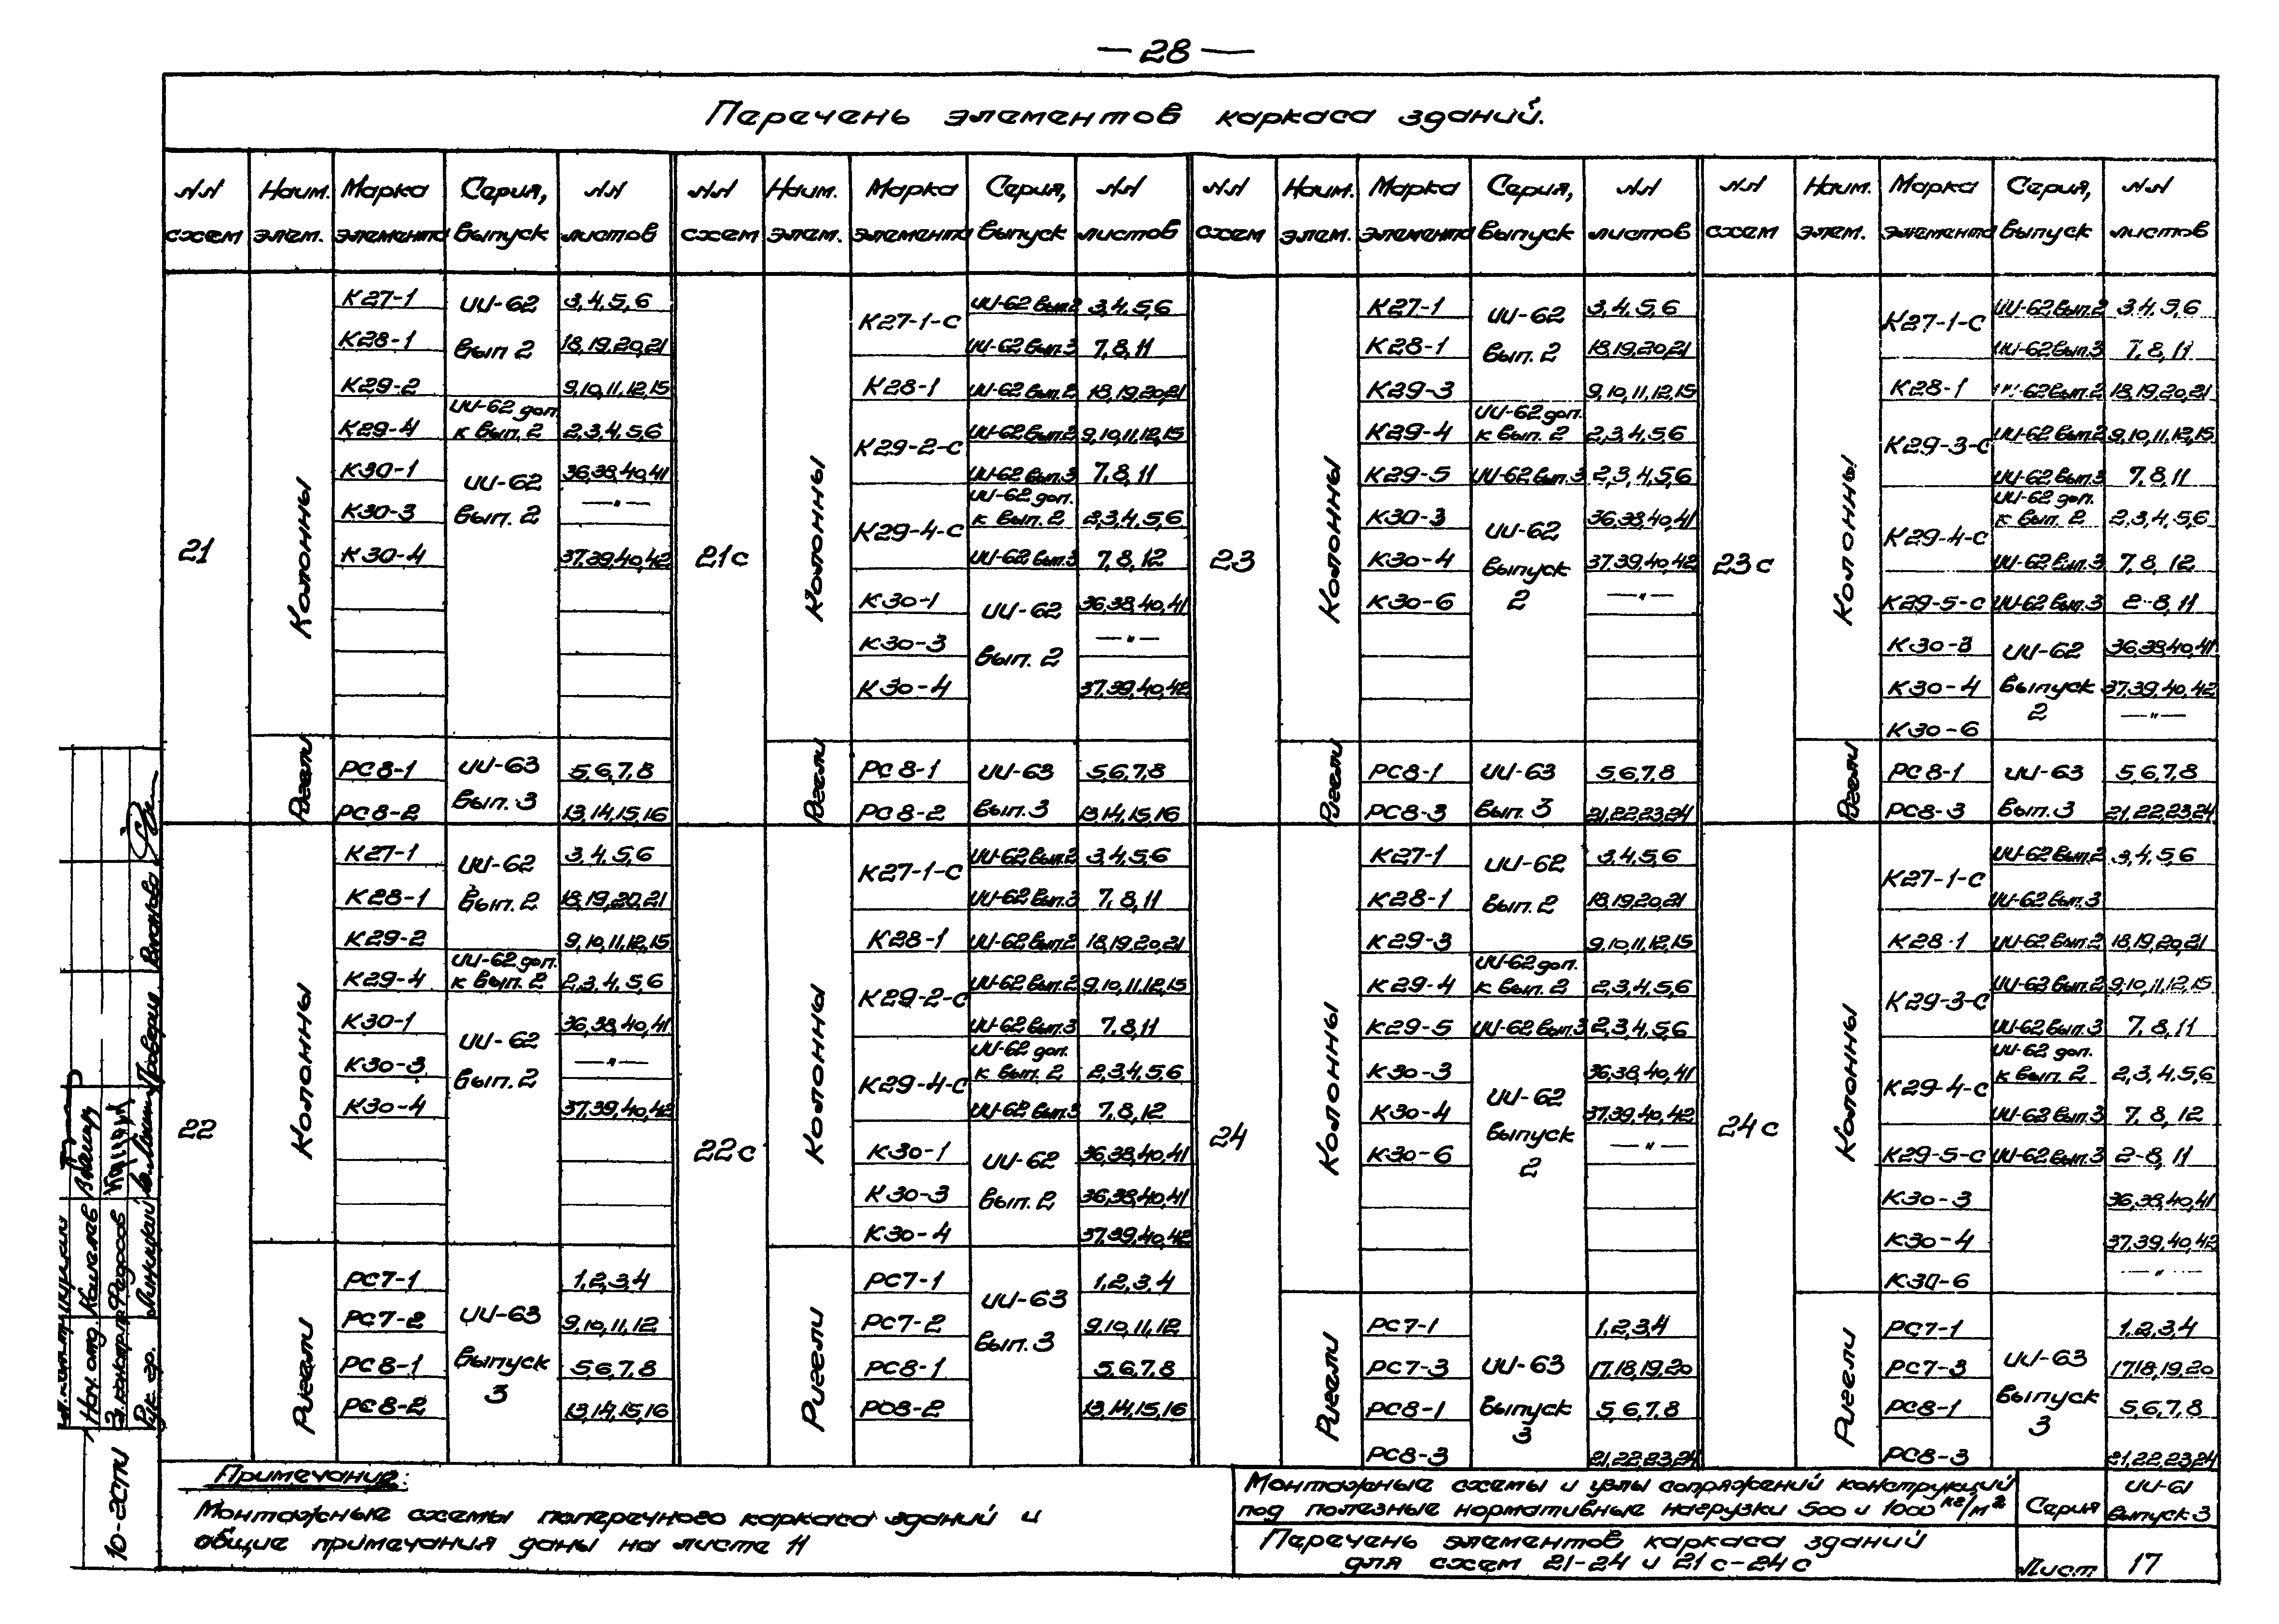 — 28 —
Перечень элементов каркаса зданий.
NN схем | Наим. элем. | Марка элемента | Серия, выпуск | NN листов
21 | Колонны | К27-1 | ИИ-62 вып 2 | 3,4,5,6
К28-1 | 18,19,20,21
К29-2 | 9,10,11,12,15
К29-4 | ИИ-62 доп. к вып. 2 | 2,3,4,5,6
К30-1 | ИИ-62 вып. 2 | 36,38,40,41
К30-3 | —"—
К30-4 | 37,39,40,42
Ригели | РС8-1 | ИИ-63 вып. 3 | 5,6,7,8
РС8-2 | 13,14,15,16
22 | Колонны | К27-1 | ИИ-62 вып. 2 | 3,4,5,6
К28-1 | 18,19,20,21
К29-2 | 9,10,11,12,15
К29-4 | ИИ-62 доп. к вып. 2 | 2,3,4,5,6
К30-1 | ИИ-62 вып. 2 | 36,38,40,41
К30-3 | —"—
К30-4 | 37,39,40,42
Ригели | РС7-1 | ИИ-63 выпуск 3 | 1,2,3,4
РС7-2 | 9,10,11,12
РС8-1 | 5,6,7,8
РС8-2 | 13,14,15,16
NN схем | Наим. элем. | Марка элемента | Серия, выпуск | NN листов
21с | Колонны | К27-1-с | ИИ-62 вып.2 | 3,4,5,6
ИИ-62 вып.3 | 7,8,11
К28-1 | ИИ-62 вып.2 | 18,19,20,21
К29-2-с | ИИ-62 вып.2 | 9,10,11,12,15
ИИ-62 вып.3 | 7,8,11
К29-4-с | ИИ-62 доп. к вып. 2 | 2,3,4,5,6
ИИ-62 вып.3 | 7,8,12
К30-1 | ИИ-62 вып. 2 | 36,38,40,41
К30-3 | —"—
К30-4 | 37,39,40,42
Ригели | РС8-1 | ИИ-63 вып.3 | 5,6,7,8
РС8-2 | 13,14,15,16
22с | Колонны | К27-1-с | ИИ-62 вып.2 | 3,4,5,6
ИИ-62 вып.3 | 7,8,11
К28-1 | ИИ-62 вып.2 | 18,19,20,21
К29-2-с | ИИ-62 вып.2 | 9,10,11,12,15
ИИ-62 вып.3 | 7,8,11
К29-4-с | ИИ-62 доп. к вып. 2 | 2,3,4,5,6
ИИ-62 вып.3 | 7,8,12
К30-1 | ИИ-62 вып. 2 | 36,38,40,41
К30-3 | 36,38,40,41
К30-4 | 37,39,40,42
Ригели | РС7-1 | ИИ-63 вып. 3 | 1,2,3,4
РС7-2 | 9,10,11,12
РС8-1 | 5,6,7,8
РС8-2 | 13,14,15,16
NN схем | Наим. элем. | Марка элемента | Серия, выпуск | NN листов
23 | Колонны | К27-1 | ИИ-62 вып. 2 | 3,4,5,6
К28-1 | 18,19,20,21
К29-3 | 9,10,11,12,15
К29-4 | ИИ-62 доп. к вып. 2 | 2,3,4,5,6
К29-5 | ИИ-62 вып.3 | 2,3,4,5,6
К30-3 | ИИ-62 выпуск 2 | 36,38,40,41
К30-4 | 37,39,40,42
К30-6 | —"—
Ригели | РС8-1 | ИИ-63 вып. 3 | 5,6,7,8
РС8-3 | 21,22,23,24
24 | Колонны | К27-1 | ИИ-62 вып. 2 | 3,4,5,6
К28-1 | 18,19,20,21
К29-3 | 9,10,11,12,15
К29-4 | ИИ-62 доп. к вып. 2 | 2,3,4,5,6
К29-5 | ИИ-62 вып.3 | 2,3,4,5,6
К30-3 | ИИ-62 выпуск 2 | 36,38,40,41
К30-4 | 37,39,40,42
К30-6 | —"—
Ригели | РС7-1 | ИИ-63 выпуск 3 | 1,2,3,4
РС7-3 | 17,18,19,20
РС8-1 | 5,6,7,8
РС8-3 | 21,22,23,24
NN схем | Наим. элем. | Марка элемента | Серия, выпуск | NN листов
23с | Колонны | К27-1-с | ИИ-62 вып.2 | 3,4,5,6
ИИ-62 вып.3 | 7,8,11
К28-1 | ИИ-62 вып.2 | 18,19,20,21
К29-3-с | ИИ-62 вып.2 | 9,10,11,12,15
ИИ-62 вып.3 | 7,8,11
К29-4-с | ИИ-62 доп. к вып. 2 | 2,3,4,5,6
ИИ-62 вып.3 | 7,8,12
К29-5-с | ИИ-62 вып.3 | 2-8,11
К30-3 | ИИ-62 выпуск 2 | 36,38,40,41
К30-4 | 37,39,40,42
К30-6 | —"—
Ригели | РС8-1 | ИИ-63 вып.3 | 5,6,7,8
РС8-3 | 21,22,23,24
24с | Колонны | К27-1-с | ИИ-62 вып.2 | 3,4,5,6
ИИ-62 вып.3
К28-1 | ИИ-62 вып.2 | 18,19,20,21
К29-3-с | ИИ-62 вып.2 | 9,10,11,12,15
ИИ-62 вып.3 | 7,8,11
К29-4-с | ИИ-62 доп. к вып. 2 | 2,3,4,5,6
ИИ-62 вып.3 | 7,8,12
К29-5-с | ИИ-62 вып.3 | 2-8,11
К30-3 | 36,38,40,41
К30-4 | 37,39,40,42
К30-6 | —"—
Ригели | РС7-1 | ИИ-63 выпуск 3 | 1,2,3,4
РС7-3 | 17,18,19,20
РС8-1 | 5,6,7,8
РС8-3 | 21,22,23,24
Примечание:
Монтажные схемы поперечного каркаса зданий и
общие примечания даны на листе 11
Монтажные схемы и узлы сопряжений конструкций
под полезные нормативные нагрузки 500 и 1000 кг/м²
Серия ИИ-61 выпуск 3
Перечень элементов каркаса зданий
для схем 21-24 и 21с-24с
Лист 17
Нач. отд.
Рук. гр.
Проверил